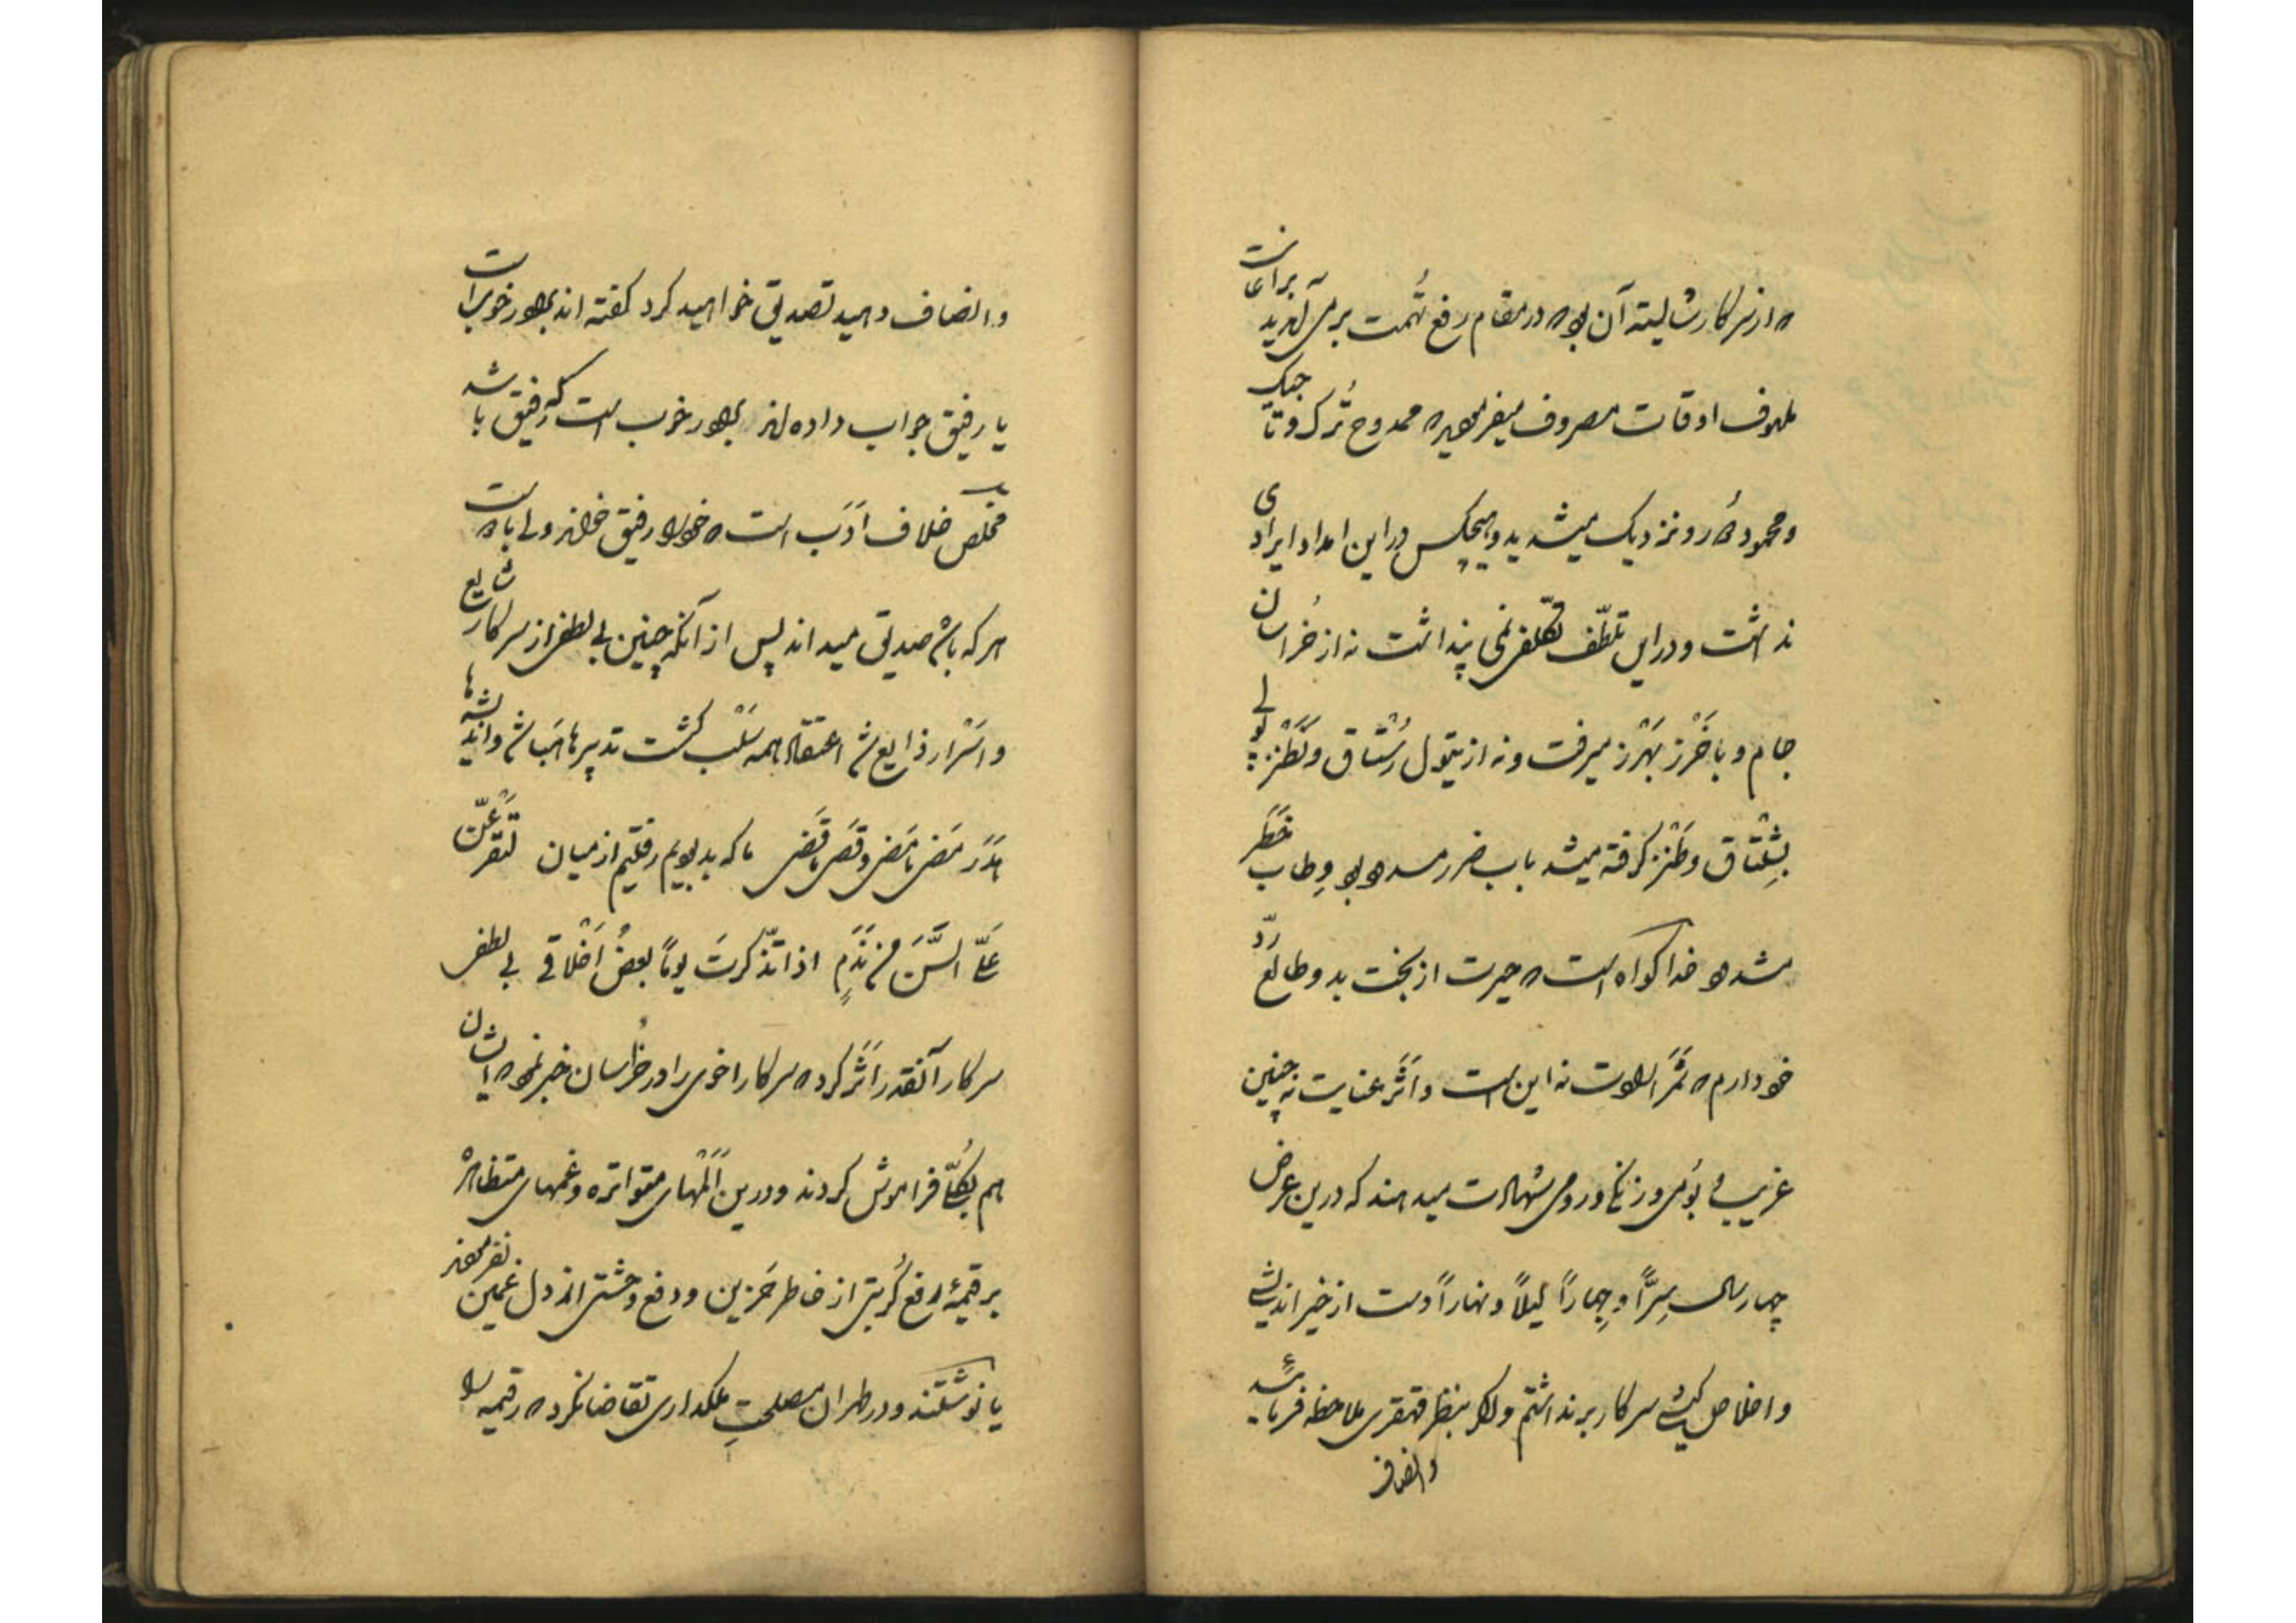 که از سرکار شایسته آن بود که در مقام رفع تُهمت بر می‌آمدید برائت
ملهوف اوقات مصروف میفرمودید که ممدوح تُرک و تاجیک
و محمودِ دُور و نزدیک میشدید و هیچکس در این امداد ایرادی
نداشت و در این تلطّف تکلّفی نمی پنداشت نه از خُراسان
جام و باخَرْز بهَرْز میرفت و نه از تیول رُسْتاق و نَطَنْز پولی
بِشِلْتاق و طَنْز گرفته میشد باب ضرر مسدود بود و طاب خَطَر
مشدود خدا گواه است که حیرت از بخت بد و طالع ردّ
خود دارم که ثَمَر الفت نه این است و اَثَر عنایت نه چنین
غریب و بومی و زنگی و رومی شهادت میدهند که درین عرض
چهار سال سِرًّا و جِهاراً لیلاً و نهاراً دست از خیر اندیشی
و اخلاص کیشی سرکار برنداشتم و اگر بنظر قهقری ملاحظه فرمائید
وانصاف
وانصاف دهید تصدیق خواهید کرد گفته اند بلهاور خوب است
یا رفیق جواب داده اند بلهاور خوب است که رفیق باشد
مخلص خلاف اَدَب است که خود را رفیق خواند ولی با
هر که باشم صدیق میداند پس از آنکه چنین بی لطفی از سرکار شایع
و اسْرار ذایع شد اعتقاد همه سَلْب گشت تدبیرها هَبا شد و اندیشه‌ها
هَدَر مَضی مامَضی و قَضی ماقَضی ما که بد بودیم رفتیم از میان لَتَقْرَعَنّ
عَلَیَّ السِّنَّ مِنْ نَدَمٍ اذا تذّکرتَ یوماً بعضُ اَخْلاقی بی لطفی
سرکار آنقدر اَثَر کرد که سرکار اخوی را در خُراسان خبر نمود که ایشان
هم بکُلّی فراموش کردند و درین اَلَمْهای متواتره و غمهای متظاهره
برقیمهٔ رفع کُربتی از خاطر حَزین و دفع وحشتی از دل غمین نفرمودند
یا نوشتند و در طهران مصلحتِ ملکداری تقاضا نکرد که رقیمه را